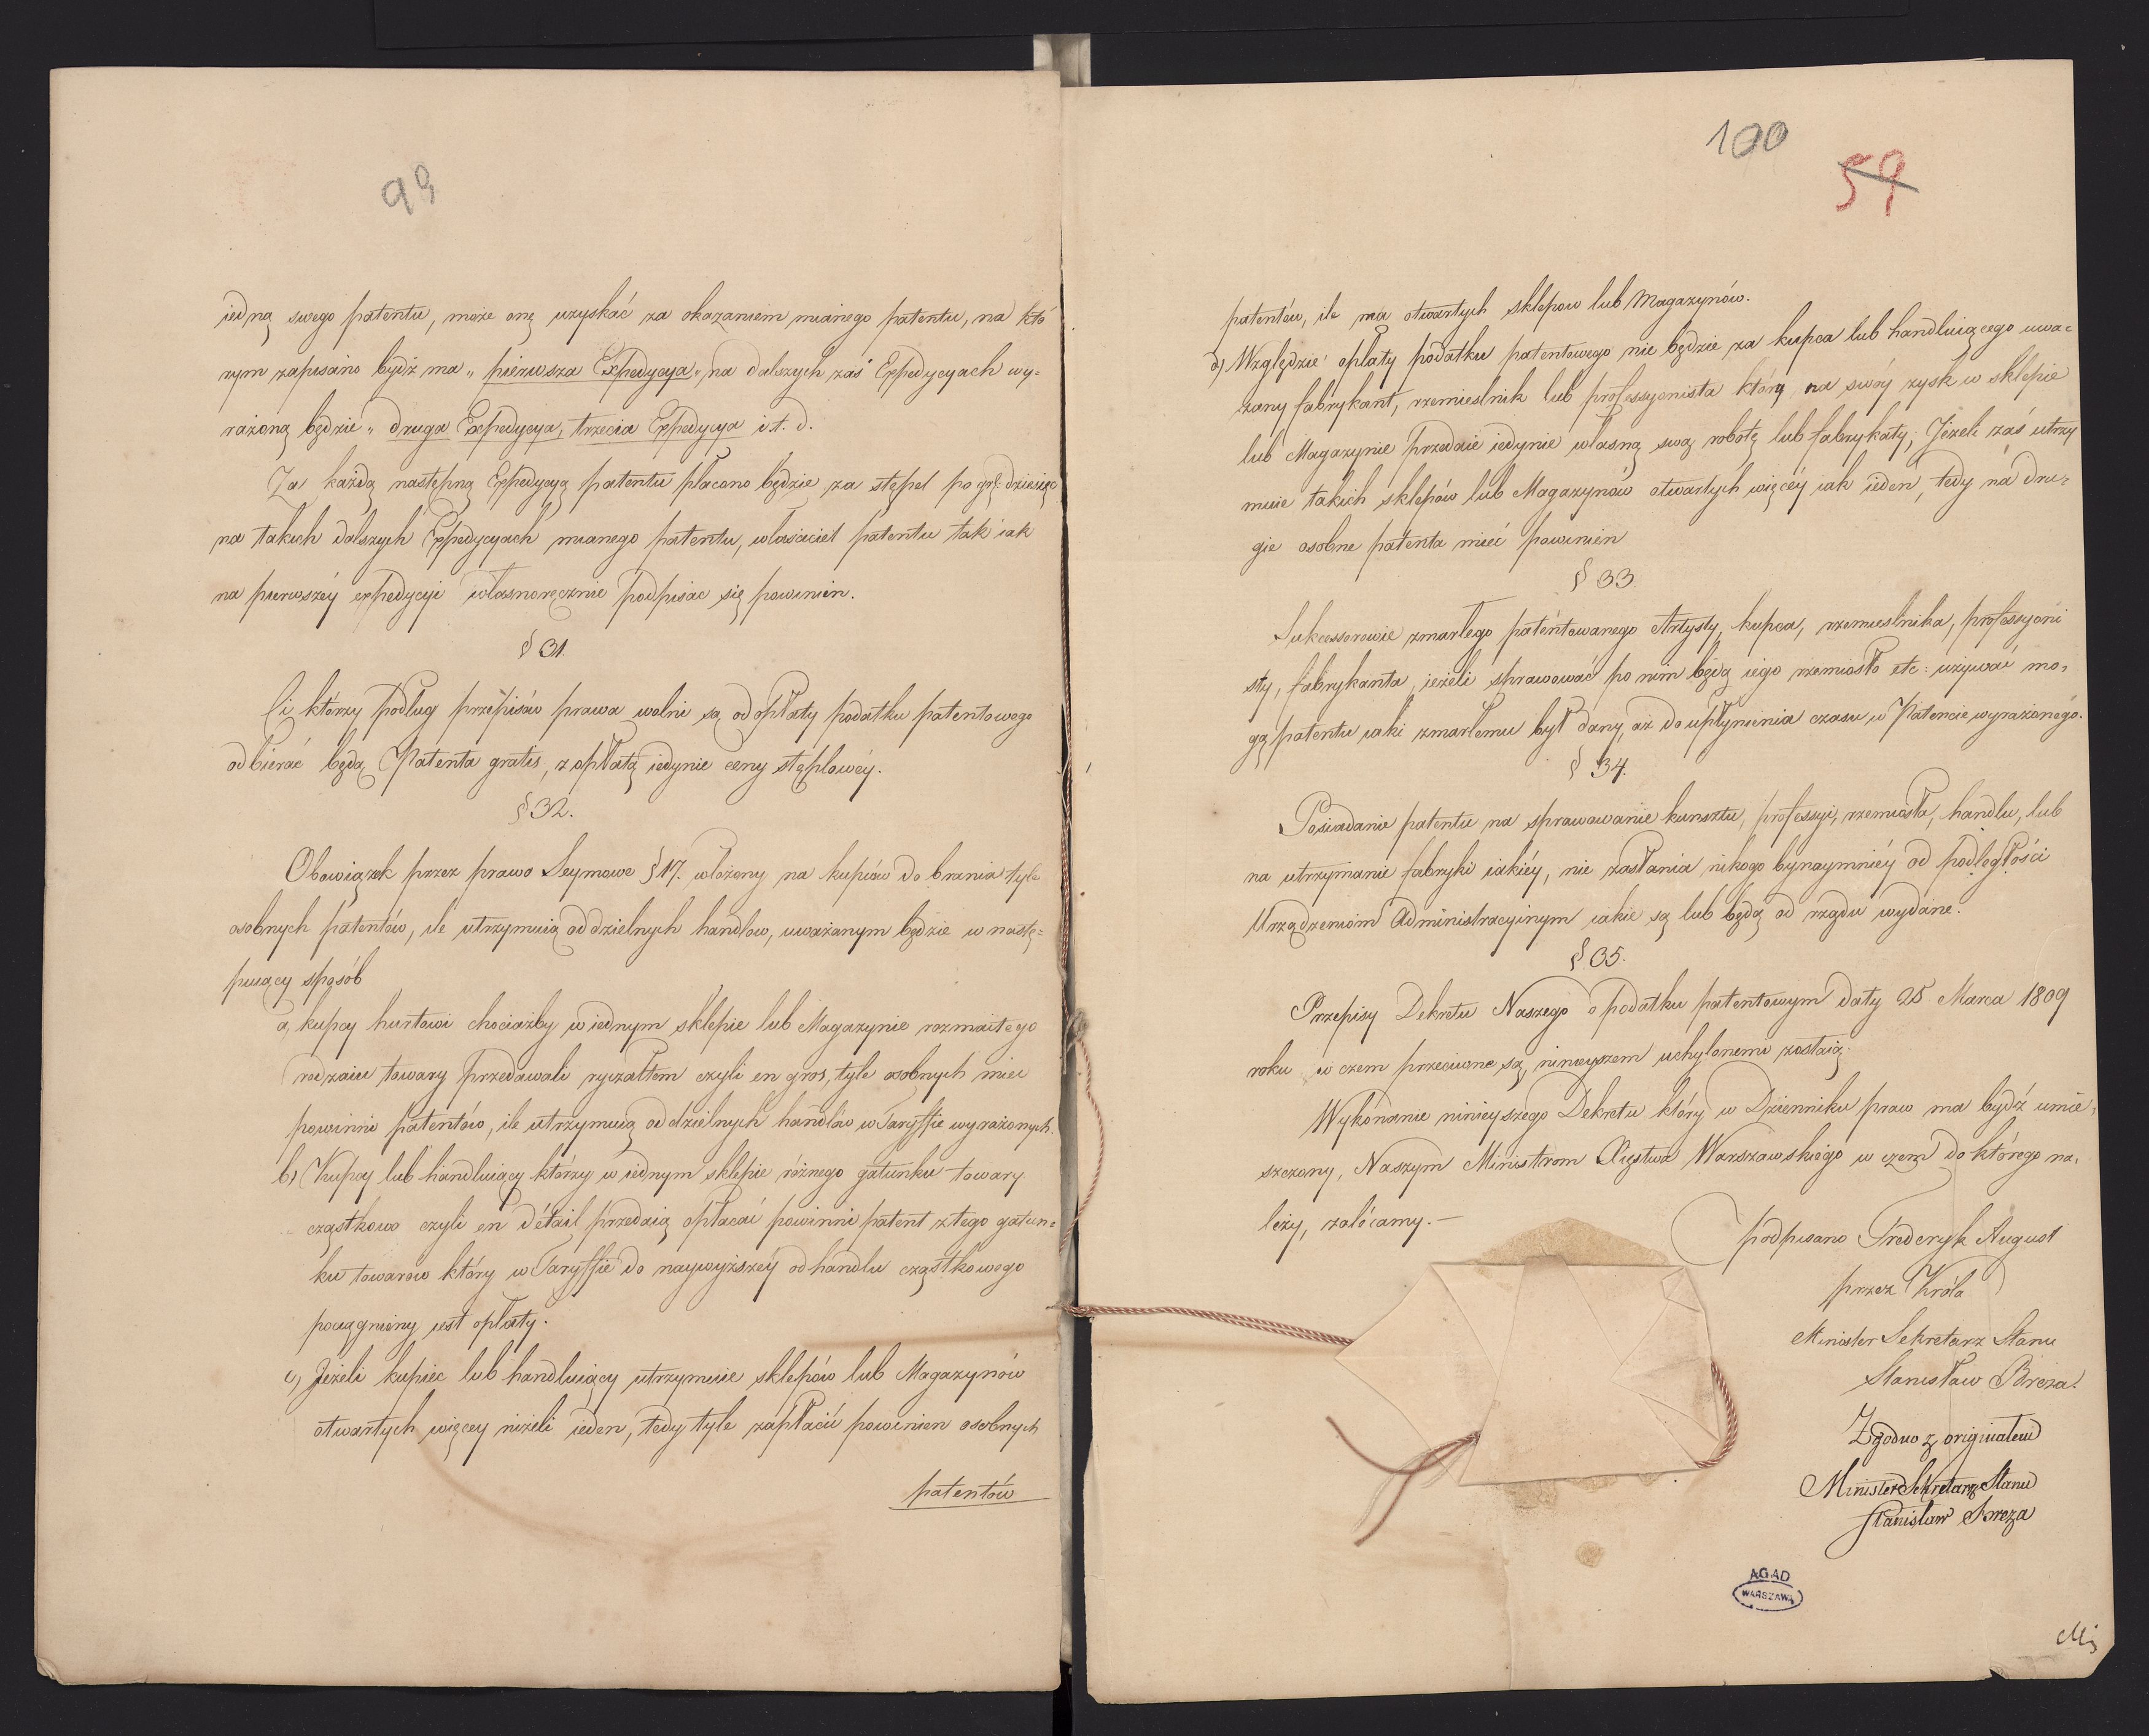 99
iedną swego patentu, może onę uzyskać za okazaniem mianego patentu, na któ
rym zapisano bydź ma „pierwsza Expedycya„ na dalszych zaś Expedycyach wy-
rażoną będzie „druga Expedycya, trzecia Expedycya i t. d.
Za każdą następną Expedycyą patentu płacono będzie za stępel po gr: dziesięć
na takich dalszych Expedycyach mianego patentu, właściciel patentu tak iak
na pierwszéy expedycyi własnoręcznie podpisac się powinien.
§ 31.
Ci którzy podług przepisów prawa wolni są od opłaty podatku patentowego
odbierać będą Patenta gratis, z opłatą iedynie ceny stęplowéy.
§ 32.
Obowiązek przez prawo Seymowe § 17. włożony na kupców do brania tyle
osobnych patentów, ile utrzymuią oddzielnych handlow, uważanym będzie w nastę-
puiący sposób
a, kupcy hurtowi chociażby w iednym sklepie lub Magazynie rozmaitego
rodzaiu towary przedawali ryczałtem czyli en gros, tyle osobnych miec
powinni patentów, ile utrzymuią oddzielnych handlów w Taryffie wyrażonych.
b) Kupcy lub handluiący którzy w iednym sklepie różnego gatunku towary
cząstkowo czyli en détail przedaią opłacać powinni patent z tego gatun-
ku towarow który w Taryffie do naywyższéy od handlu cząstkowego
pociągniony iest opłaty.
c) Jeżeli kupiec lub handluiący utrzymuie sklepów lub Magazynów
otwartych więcey niżeli ieden, tedy tyle zapłacić powinien osobnych
patentów
100
59
patentów, ile ma otwartych sklepow lub Magazynów.
d) Względzie opłaty podatku patentowego nie będzie za kupca lub handluiącego uwa-
zany fabrykant, rzemieslnik lub professyonista który na swóy zysk w sklepie
lub Magazynie przedaie iedynie własną swą robotę lub fabrykaty; Jeżeli zaś utrzy
muie takich sklepów lub Magazynów otwartych więcéy iak ieden, tedy na dru-
gie osobne patenta mieć powinien
§ 33.
Sukcessorowie zmarłego patentowanego Artysty, kupca, rzemieslnika, professyoni
sty, fabrykanta, ieżeli sprawować po nim będą iego rzemiosło etc: używać mo-
gą patentu iaki zmarłemu był dany, aż do upłynienia czasu w Patencie wyrażonégo.
§ 34.
Posiadanie patentu na sprawowanie kunsztu, professyi, rzemiosła, handlu, lub
na utrzymanie fabryki iakiéy, nie zasłania nikogo bynaymniéy od podległości
Urządzeniom Administracyinym iakie są lub będą od rządu wydane.
§ 35.
Przepisy Dekretu Naszego o podatku patentowym daty 25 Marca 1809
roku w czem przeciwne są, ninieyszem uchylonemi zostaią.
Wykonanie ninieyszego Dekretu który w Dzienniku praw ma bydź umie-
szczony, Naszym Ministrom Xięstwa Warszawskiégo w czem do którego na-
leży, zalécamy.—
podpisano Frederyk August
przez Króla
Minister Sekretarz Stanu
Stanisław Breza.
Zgodno z originałem
Minister Sekretarz Stanu
Stanisław Breza
AGAD
WARSZAWA